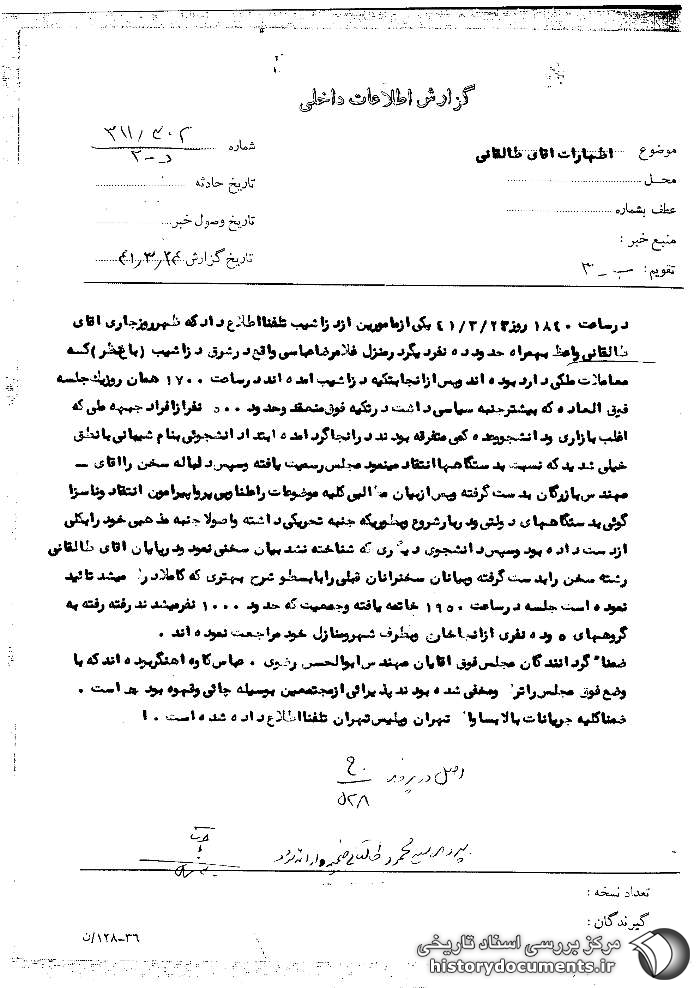 گزارش اطلاعات داخلی
موضوع اظهارات آقای طالقانی
شماره ۳۱۱/۴۰۲
د-۳
محل
تاریخ حادثه
عطف بشماره
تاریخ وصول خبر
منبع خبر :
تاریخ گزارش ۴۱/۳/۲۴
تقویم : ب-۳
در ساعت ۱۸۴۰ روز ۴۱/۳/۲۳ یکی از مامورین از دزاشیب تلفنا اطلاع داد که ظهر روز جاری آقای
طالقانی واعظ بهمراه حدود ده نفر دیگر در منزل غلامرضا عباسی واقع در شرق دزاشیب (باغ ظفر) که
معاملات ملکی دارد بوده اند و پس از آنجا بتکیه دزاشیب آمده اند در ساعت ۱۷۰۰ همان روز یک جلسه
فوق العاده که بیشتر جنبه سیاسی داشت در تکیه فوق منعقد و حدود ۵۰۰ نفر از افراد جبهه ملی که
اغلب بازاری و دانشجو و عده کمی متفرقه بودند در آنجا گرد آمده ابتدا دانشجوئی بنام شیبانی با نطق
خیلی شدید که نسبت بدستگاهها انتقاد مینمود مجلس رسمیت یافته و سپس دنباله سخن را آقای –
مهندس بازرگان بدست گرفته و پس از بیان مطالبی کلیه موضوعات را علنا و بی پروا پیرامون انتقاد و ناسزا
گوئی بدستگاههای دولتی و دربار شروع و بطوریکه جنبه تحریکی داشته و اصولا جنبه مذهبی خود را بکلی
از دست داده بود و سپس دانشجوی دیگری که شناخته نشد بیان سخنی نمود و در پایان آقای طالقانی
رشته سخن را بدست گرفته و بیانات سخنرانان قبلی را با بسط و شرح بهتری که کاملا در میشد تائید
نموده است جلسه در ساعت ۱۹۵۰ خاتمه یافته و جمعیت که حدود ۱۰۰۰ نفر میشدند رفته رفته به
گروههای ۵ و ده نفری از آنجا خارج و بطرف شهر و منازل خود مراجعت نموده اند .
ضمنا گردانندگان مجلس فوق آقایان مهندس ابوالحسن رضوی . عباس کاوه آهنگر بوده اند که با
وضع فوق مجلس را و مخفی شده بودند پذیرائی از مجتمعین بوسیله چائی و قهوه بوده است .
ضمنا کلیه جریانات بالا بساواک تهران و پلیس تهران تلفنا اطلاع داده شده است . ا
اصل در پرونده
۵۲۸
محمود طالقانی
تعداد نسخه :
گیرندگان :
۳۶-۱۲۸/ن
مرکز بررسی اسناد تاریخی
historydocuments.ir